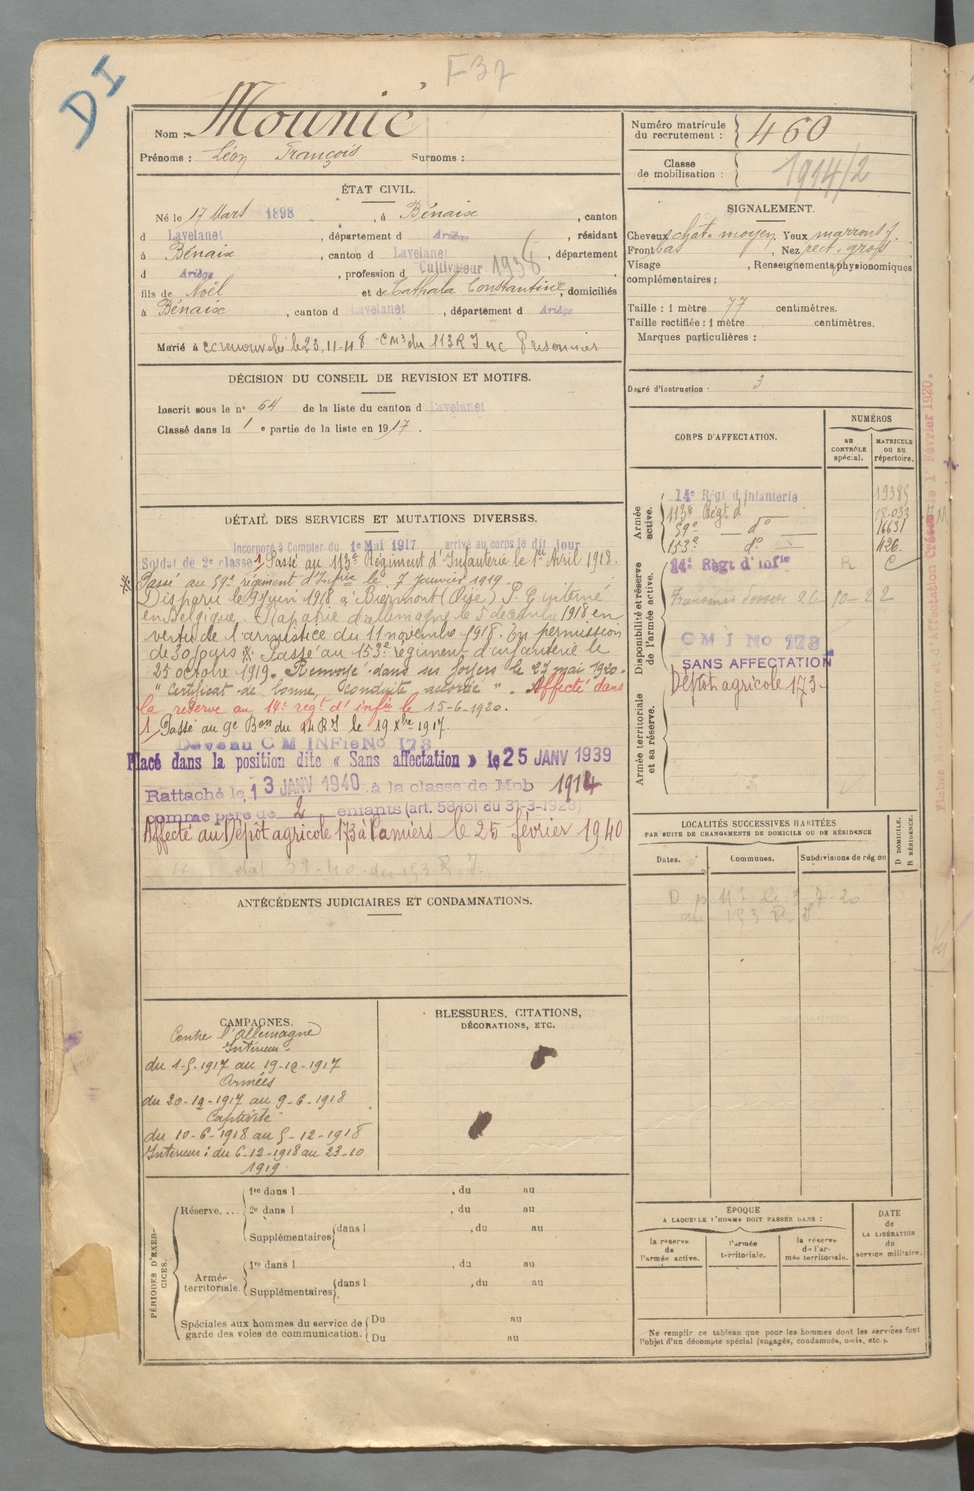 DI
F37
Nom : Mounié
Prénoms : Léon François Surnoms :
Numéro matricule du recrutement : 460
Classe de mobilisation : 1914/2
ÉTAT CIVIL.
Né le 17 Mars 1898, à Bénaix, canton
d Lavelanet, département d Ariège, résidant
à Bénaix, canton d Lavelanet, département
d Ariège, profession d Cultivateur 1938
fils de Noël et de Cathala Constantine, domiciliés
à Bénaix, canton d Lavelanet, département d Ariège
Marié à
le 23.11.18 du 113 R I Prisonnier
SIGNALEMENT.
Cheveux chât. moyen. Yeux marrons f.
Front bas, Nez rect. gros
Visage , Renseignements physionomiques
complémentaires :
Taille : 1 mètre 77 centimètres.
Taille rectifiée : 1 mètre centimètres.
Marques particulières :
Degré d'instruction : 3
DÉCISION DU CONSEIL DE REVISION ET MOTIFS.
Inscrit sous le n° 64 de la liste du canton d Lavelanet
Classé dans la 1e partie de la liste en 1917.
DÉTAIL DES SERVICES ET MUTATIONS DIVERSES.
Incorporé à Compter du 1e Mai 1917 arrivé au corps le dit jour
Soldat de 2e classe 1 Passé au 113e Régiment d'Infanterie le 1er Avril 1918.
Passé au 59e régiment d'Infrie le 7 Janvier 1919.
Disparu le 9 Juin 1918 à Biermont (Oise) P. G. interné
en Belgique. Rapatrié d'allemagne le 5 décembre 1918 en
vertu de l'armistice du 11 novembre 1918. En permission
de 30 jours Passé au 153e régiment d'infanterie le
25 octobre 1919. Renvoyé dans ses foyers le 27 mai 1920.
"Certificat de bonne conduite accordé". Affecté dans
la réserve au 14e régt d'infie le 15-6-1920.
1 Passé au 9e Bon du 14 R I le 19 Xbre 1917.
Devenu C M INFie No 178
Placé dans la position dite « Sans affectation » le 25 JANV 1939
Rattaché le 13 JANV 1940 à la classe de Mob 1914
comme père de 2 enfants (art. 58 loi du 31-3-1928)
Affecté au Dépôt agricole 173 à Pamiers le 25 février 1940
CORPS D'AFFECTATION.
NUMÉROS
AU CONTRÔLE spécial.
MATRICULE OU AU répertoire.
Armée active.
14e Régt d'Infanterie 19385
113e Régt do 18.033
59e do 16631
153e do 436
Disponibilité et réserve de l'armée active.
14e Régt d'Infie R
C M I No 178
SANS AFFECTATION
Dépôt agricole 173
Armée territoriale et sa réserve.
LOCALITÉS SUCCESSIVES HABITÉES
PAR SUITE DE CHANGEMENTS DE DOMICILE OU DE RÉSIDENCE
Dates. Communes. Subdivisions de région
D DOMICILE. R RÉSIDENCE.
ANTÉCÉDENTS JUDICIAIRES ET CONDAMNATIONS.
CAMPAGNES.
Contre l'Allemagne
Intérieur
du 1-5-1917 au 19-12-1917
Armées
du 20-12-1917 au 9-6-1918
Captivité
du 10-6-1918 au 5-12-1918
Intérieur : du 6-12-1918 au 23-10
1919.
BLESSURES, CITATIONS,
DÉCORATIONS, ETC.
PÉRIODES D'EXERCICES.
Réserve.... 1re dans l , du au
2e dans l , du au
Supplémentaires dans l , du au
Armée territoriale. 1re dans l , du au
Supplémentaires dans l , du au
Spéciales aux hommes du service de garde des voies de communication. Du au
Du au
ÉPOQUE
A LAQUELLE L'HOMME DOIT PASSER DANS :
la réserve de l'armée active.
l'armée territoriale.
la réserve de l'armée territoriale.
DATE de LA LIBÉRATION du service militaire.
Ne remplir ce tableau que pour les hommes dont les services font
l'objet d'un décompte spécial (engagés, condamnés, omis, etc.).